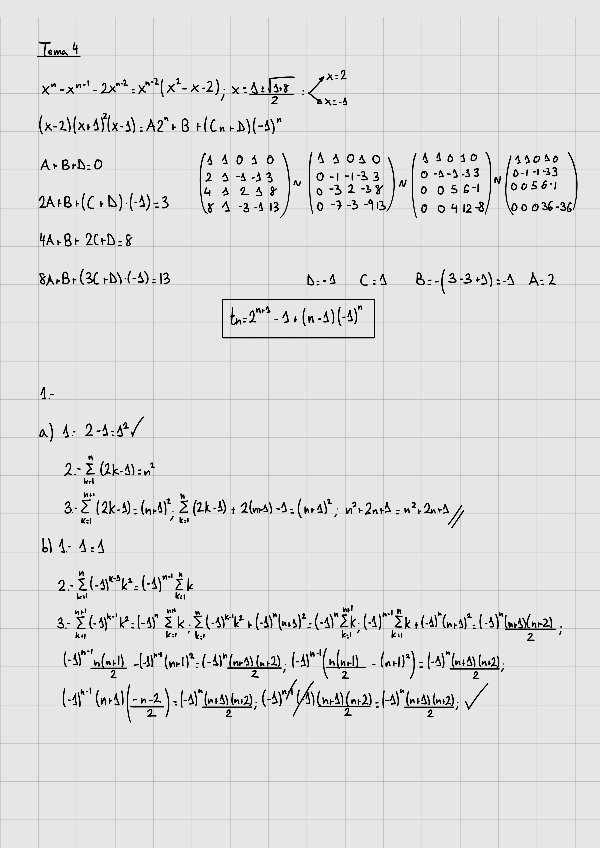 Tema 4
xⁿ - xⁿ⁻¹ - 2xⁿ⁻² = xⁿ⁻²(x² - x - 2); x = (1 ± √(1+8))/2 : x=2
x=-1
(x-2)(x+1)²(x-1) = A2ⁿ + B + (Cn+D)(-1)ⁿ
A+B+D=0
2A+B+(C+D)·(-1)=3
4A+B+2C+D=8
8A+B+(3C+D)·(-1)=13
(1 1 0 1 0) ~ (1 1 0 1 0) ~ (1 1 0 1 0) ~ (1 1 0 1 0)
(2 1 -1 -1 3) (0 -1 -1 -3 3) (0 -1 -1 -3 3) (0 -1 -1 -3 3)
(4 1 2 1 8) (0 -3 2 -3 8) (0 0 5 6 -1) (0 0 5 6 -1)
(8 1 -3 -1 13) (0 -7 -3 -9 13) (0 0 4 12 -8) (0 0 0 36 -36)
D=-1 C=1 B=-(3-3+1)=-1 A=2
tₙ=2ⁿ⁺¹ - 1 + (n-1)(-1)ⁿ
1.-
a) 1.- 2-1=1² ✓
2.- Σₖ₌₁ⁿ (2k-1)=n²
3.- Σₖ₌₁ⁿ⁺¹ (2k-1)=(n+1)²; Σₖ₌₁ⁿ (2k-1) + 2(n+1)-1=(n+1)²; n²+2n+1=n²+2n+1 //
b) 1.- 1=1
2.- Σₖ₌₁ⁿ (-1)ᵏ⁻¹k²=(-1)ⁿ⁻¹ Σₖ₌₁ⁿ k
3.- Σₖ₌₁ⁿ⁺¹ (-1)ᵏ⁻¹k²=(-1)ⁿ Σₖ₌₁ⁿ⁺¹ k; Σₖ₌₁ⁿ (-1)ᵏ⁻¹k² + (-1)ⁿ(n+1)²=(-1)ⁿ Σₖ₌₁ⁿ⁺¹ k; (-1)ⁿ⁻¹ Σₖ₌₁ⁿ k + (-1)ⁿ(n+1)²=(-1)ⁿ (n+1)(n+2)/2;
(-1)ⁿ⁻¹ n(n+1)/2 - (-1)ⁿ⁻¹(n+1)²=(-1)ⁿ (n+1)(n+2)/2; (-1)ⁿ⁻¹ (n(n+1)/2 - (n+1)²)=(-1)ⁿ (n+1)(n+2)/2;
(-1)ⁿ⁻¹ (n+1)((-n-2)/2)=(-1)ⁿ (n+1)(n+2)/2; (-1)ⁿ⁻¹(-1)(n+1)(n+2)/2=(-1)ⁿ (n+1)(n+2)/2; ✓